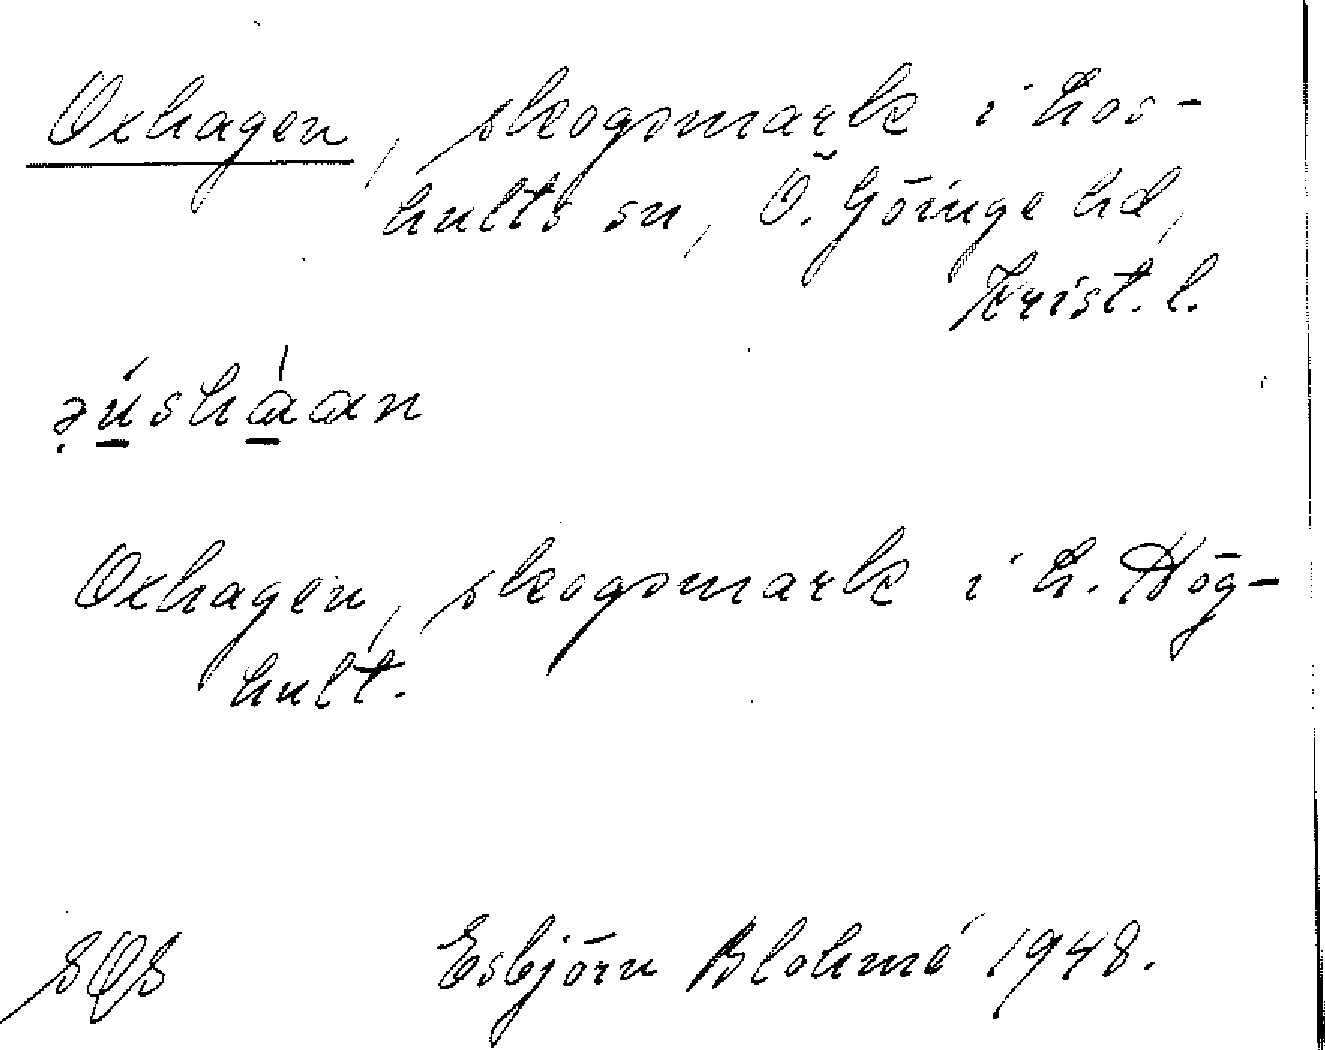 Oxhagen, skogsmark i Los-
hults sn, Ö. Göinge hd,
Krist. l.
Oxhagen, skogsmark i L. Hög-
hult.
Esbjörn Blohmé 1948.